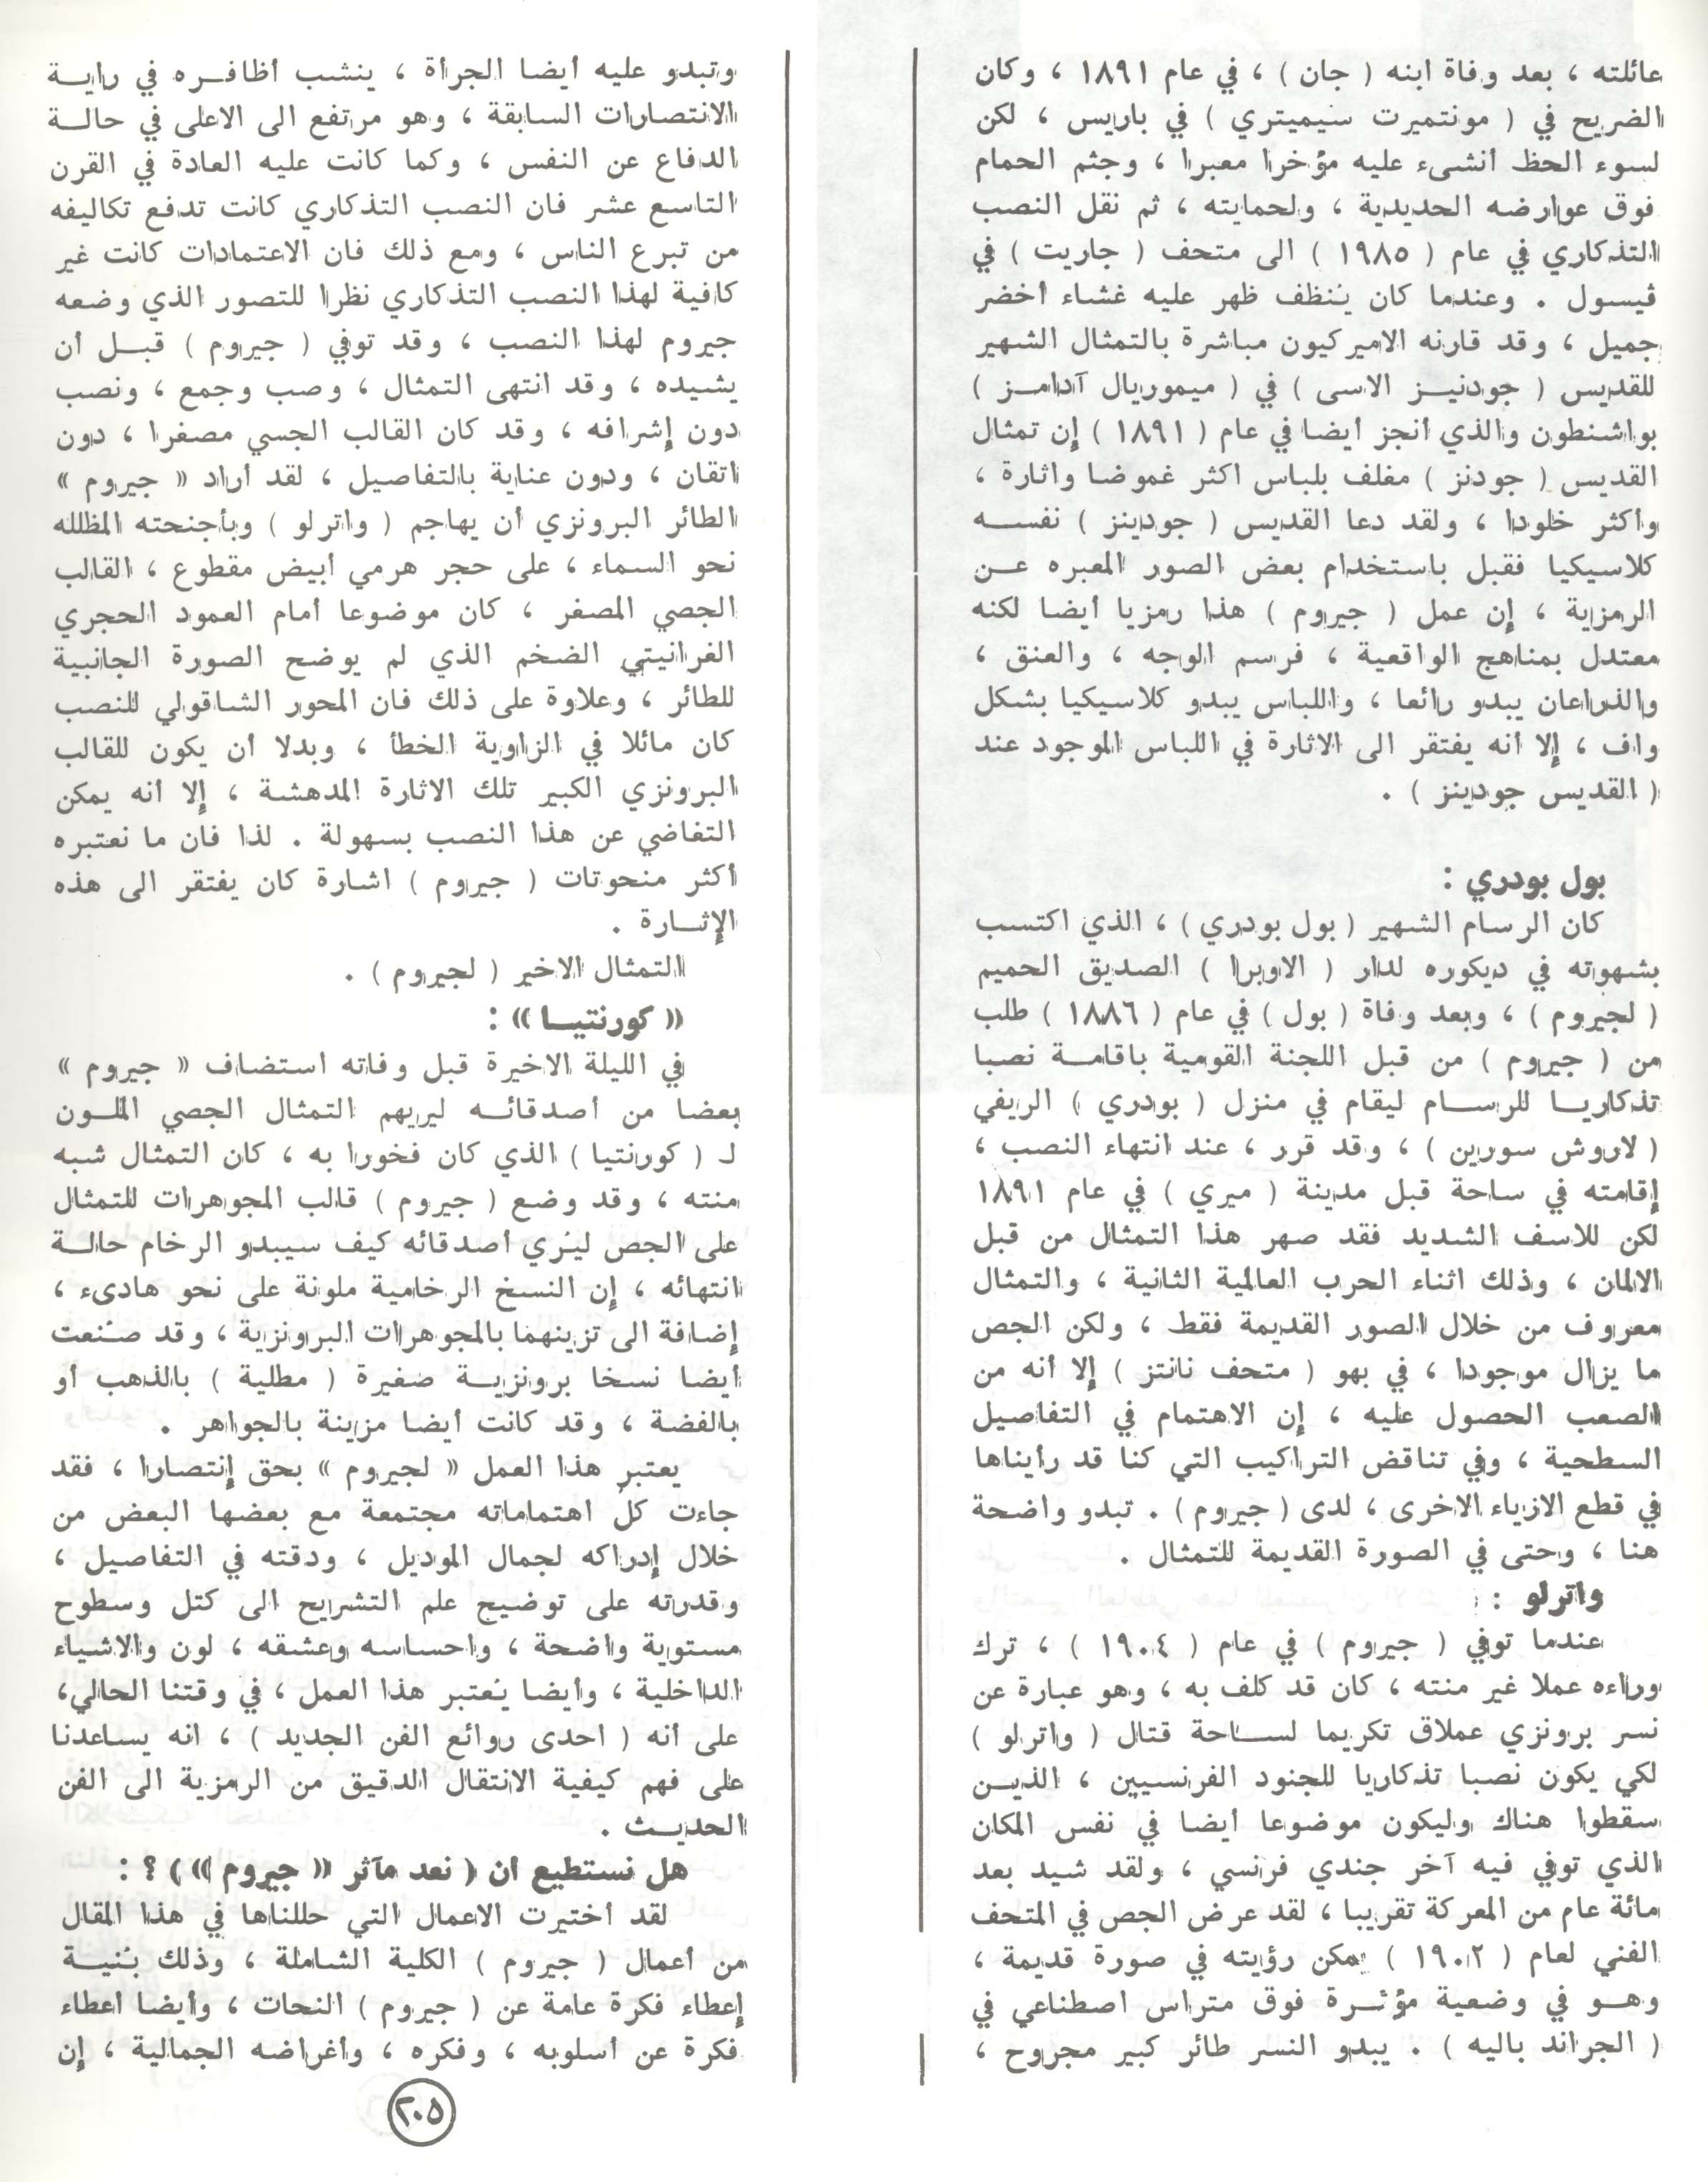 عائلته ، بعد وفاة ابنه ( جان ) ، في عام ١٨٩١ ، وكان
الضريح في ( مونتميرت سيميتري ) في باريس ، لكن
لسوء الحظ أنشىء عليه مؤخرا معبرا ، وجثم الحمام
فوق عوارضه الحديدية ، ولحمايته ، ثم نقل النصب
التذكاري في عام ( ١٩٨٥ ) الى متحف ( جاريت ) في
ڤيسول . وعندما كان يُنظف ظهر عليه غشاء أخضر
جميل ، وقد قارنه الاميركيون مباشرة بالتمثال الشهير
للقديس ( جودنيـز الاسى ) في ( ميموريال آدامـز )
بواشنطون والذي أنجز أيضا في عام ( ١٨٩١ ) إن تمثال
القديس ( جودنز ) مغلف بلباس اكثر غموضا واثارة ،
وأكثر خلودا ، ولقد دعا القديس ( جودينز ) نفســه
كلاسيكيا فقبل باستخدام بعض الصور المعبره عـن
الرمزية ، إن عمل ( جيروم ) هذا رمزيا أيضا لكنه
معتدل بمناهج الواقعية ، فرسم الوجه ، والعنق ،
والذراعان يبدو رائعا ، واللباس يبدو كلاسيكيا بشكل
واف ، إلا أنه يفتقر الى الاثارة في اللباس الموجود عند
( القديس جودينز ) .
بول بودري :
كان الرسام الشهير ( بول بودري ) ، الذي اكتسب
بشهوته في ديكوره لدار ( الاوبرا ) الصديق الحميم
( لجيروم ) ، وبعد وفاة ( بول ) في عام ( ١٨٨٦ ) طلب
من ( جيروم ) من قبل اللجنة القومية باقامـة نصبا
تذكاريـا للرسـام ليقام في منزل ( بودري ) الريفي
( لاروش سورين ) ، وقد قرر ، عند انتهاء النصب ،
إقامته في ساحة قبل مدينة ( ميري ) في عام ١٨٩١
لكن للاسف الشديد فقد صهر هذا التمثال من قبل
الالمان ، وذلك اثناء الحرب العالمية الثانية ، والتمثال
معروف من خلال الصور القديمة فقط ، ولكن الجص
ما يزال موجودا ، في بهو ( متحف نانتز ) إلا أنه من
الصعب الحصول عليه ، إن الاهتمام في التفاصيل
السطحية ، وفي تناقض التراكيب التي كنا قد رأيناها
في قطع الازياء الاخرى ، لدى ( جيروم ) . تبدو واضحة
هنا ، وحتى في الصورة القديمة للتمثال .
واترلو :
عندما توفي ( جيروم ) في عام ( ١٩٠٤ ) ، ترك
وراءه عملا غير منته ، كان قد كلف به ، وهو عبارة عن
نسر برونزي عملاق تكريما لسـاحة قتال ( واترلو )
لكي يكون نصبا تذكاريا للجنود الفرنسيين ، الذيـن
سقطوا هناك وليكون موضوعا أيضا في نفس المكان
الذي توفي فيه آخر جندي فرنسي ، ولقد شيد بعد
مائة عام من المعركة تقريبا ، لقد عرض الجص في المتحف
الفني لعام ( ١٩٠٢ ) يمكن رؤيته في صورة قديمة ،
وهـو في وضعية مؤثـرة فوق متراس اصطناعي في
( الجراند باليه ) . يبدو النسر طائر كبير مجروح ،
وتبدو عليه أيضا الجرأة ، ينشب أظافـره في رايـة
الانتصارات السابقة ، وهو مرتفع الى الاعلى في حالـة
الدفاع عن النفس ، وكما كانت عليه العادة في القرن
التاسع عشر فان النصب التذكاري كانت تدفع تكاليفه
من تبرع الناس ، ومع ذلك فان الاعتمادات كانت غير
كافية لهذا النصب التذكاري نظرا للتصور الذي وضعه
جيروم لهذا النصب ، وقد توفي ( جيروم ) قبـل أن
يشيده ، وقد انتهى التمثال ، وصب وجمع ، ونصب
دون إشرافه ، وقد كان القالب الجسي مصغرا ، دون
اتقان ، ودون عناية بالتفاصيل ، لقد أراد « جيروم »
الطائر البرونزي أن يهاجم ( واترلو ) وبأجنحته المظلله
نحو السماء ، على حجر هرمي أبيض مقطوع ، القالب
الجصي المصغر ، كان موضوعا أمام العمود الحجري
الغرانيتي الضخم الذي لم يوضح الصورة الجانبية
للطائر ، وعلاوة على ذلك فان المحور الشاقولي للنصب
كان مائلا في الزاوية الخطأ ، وبدلا أن يكون للقالب
البرونزي الكبير تلك الاثارة المدهشة ، إلا أنه يمكن
التغاضي عن هذا النصب بسهولة . لذا فان ما نعتبره
أكثر منحوتات ( جيروم ) اشارة كان يفتقر الى هذه
الإثـارة .
التمثال الاخير ( لجيروم ) .
« كورنتيـا » :
في الليلة الاخيرة قبل وفاته استضاف « جيروم »
بعضا من أصدقائـه ليريهم التمثال الجصي الملـون
لـ ( كورنتيا ) الذي كان فخورا به ، كان التمثال شبه
منته ، وقد وضع ( جيروم ) قالب المجوهرات للتمثال
على الجص ليُري أصدقائه كيف سيبدو الرخام حالـة
انتهائه ، إن النسخ الرخامية ملونة على نحو هادىء ،
إضافة الى تزينهما بالمجوهرات البرونزية ، وقد صُنعت
أيضا نسخا برونزيـة صغيرة ( مطلية ) بالذهب أو
بالفضة ، وقد كانت أيضا مزينة بالجواهر .
يعتبر هذا العمل « لجيروم » بحق إنتصارا ، فقد
جاءت كل اهتماماته مجتمعة مع بعضها البعض من
خلال إدراكه لجمال الموديل ، ودقته في التفاصيل ،
وقدرته على توضيح علم التشريح الى كتل وسطوح
مستوية واضحة ، واحساسه وعشقه ، لون والاشياء
الداخلية ، وأيضا يُعتبر هذا العمل ، في وقتنا الحالي،
على أنه ( احدى روائع الفن الجديد ) ، انه يساعدنا
على فهم كيفية الانتقال الدقيق من الرمزية الى الفن
الحديـث .
هل نستطيع أن ( نعد مآثر « جيروم » ) ؟ :
لقد أختيرت الاعمال التي حللناها في هذا المقال
من أعمال ( جيروم ) الكلية الشاملة ، وذلك بُنيـة
إعطاء فكرة عامة عن ( جيروم ) النحات ، وأيضا اعطاء
فكرة عن أسلوبه ، وفكره ، وأغراضه الجمالية ، إن
٢٠٥